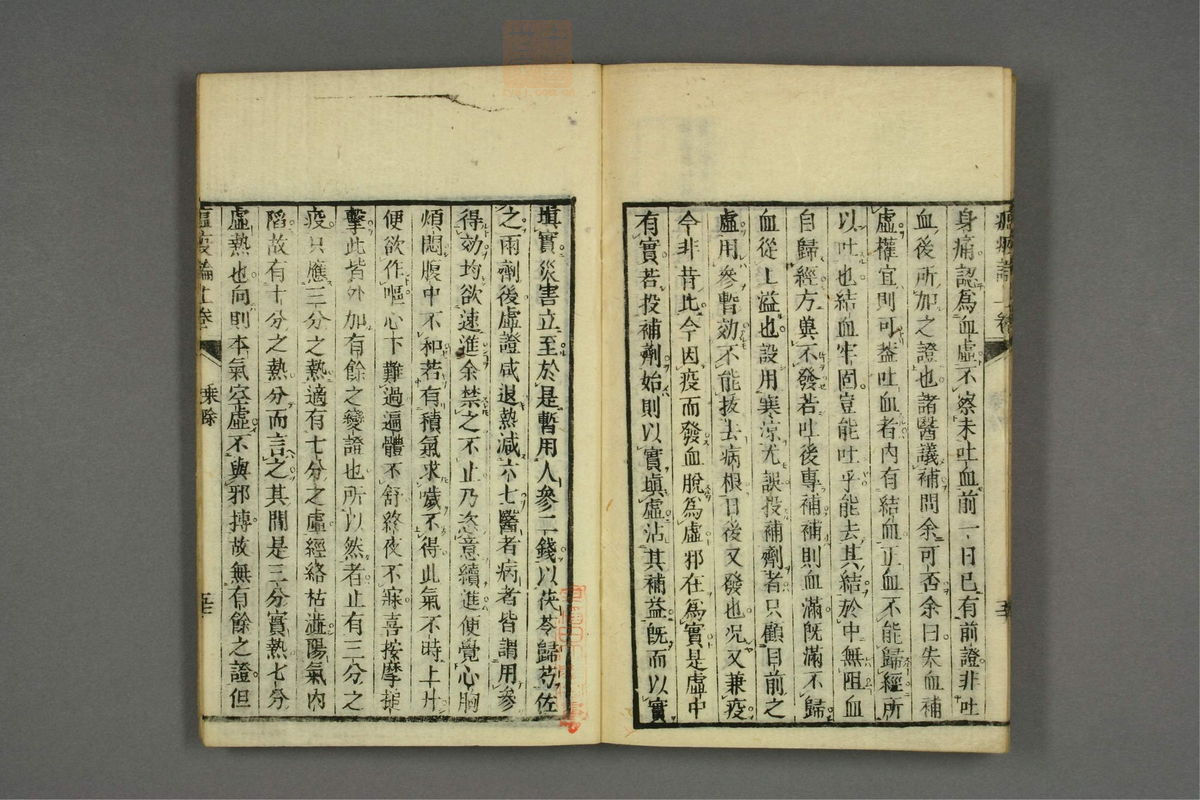 身痛認為血虛不察未吐血前一日已有前證非吐
血後所加之證也諸醫議補問余可否余曰失血補
虛權宜則可葢吐血者內有結血正血不能歸經所
以吐也結血牢固豈能吐乎能去其結於中無阻血
自歸經方兾不發若吐後專補補則血滿旣滿不歸
血從上溢也設用寒凉尤誤投補劑者只顧目前之
虛用參暫効不能拔去病根日後又發也况又兼疫
今非昔比今因疫而發血脫為虛邪在為實是虛中
有實若投補劑始則以實塡虛沾其補益旣而以實
塡實災害立至於是暫用人參二錢以茯苓歸芍佐
之兩劑後虛證咸退熱減六七醫者病者皆謂用參
得効均欲速進余禁之不止乃恣意續進便覺心胸
煩悶腹中不和若有積氣求噦不得此氣不時上升
便欲作嘔心下難過遍體不舒終夜不寐喜按摩搥
擊此皆外加有餘之變證也所以然者止有三分之
疫只應三分之熱適有七分之虛經絡枯澁陽氣內
䧟故有十分之熱分而言之其間是三分實熱七分
虛熱也向則本氣空虛不與邪搏故無有餘之證但